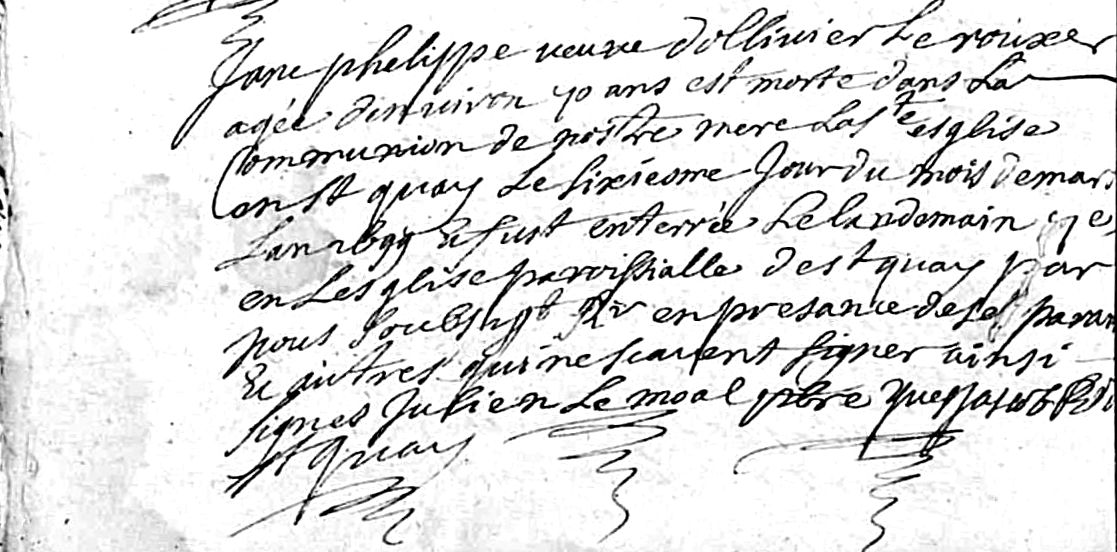 Jane phelippe veuve dollivier Le rouxer
agée denviron 70 ans est morte dans La
Communion de nostre mere La ste esglise
en st quay Le sixiesme Jour du mois de mars
Lan 1699 & fust enterrée Le landemain 7e
en Lesglise paroissialle de st quay par
nous soubsigt Rr en presance de ses paran
& autres qui ne scavent signer ainsi
signes Julien Le moal pbre yves
st quay